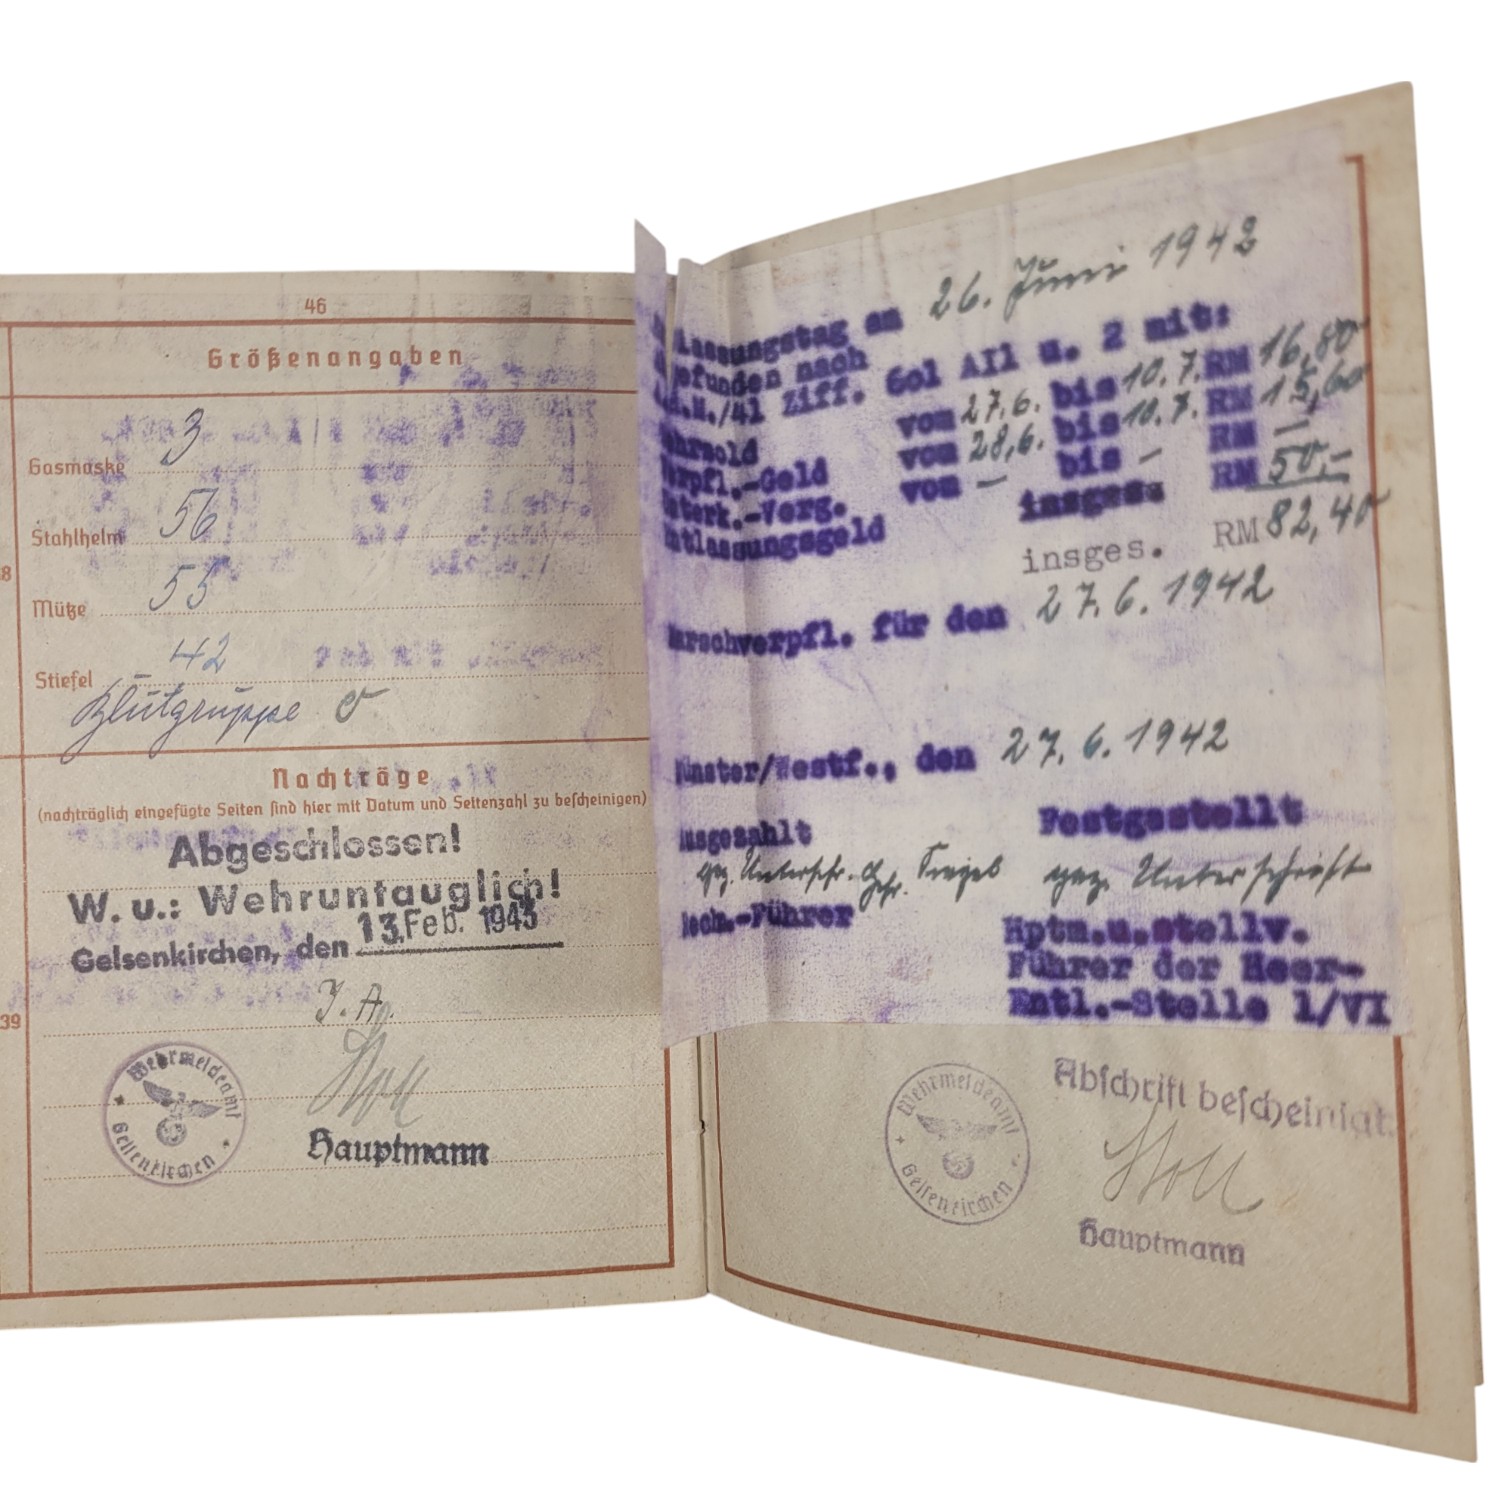 46
Größenangaben
Gasmaske 3
Stahlhelm 56
8
Mütze 55
Stiefel 42
Blutgruppe O
Nachträge
(nachträglich eingefügte Seiten sind hier mit Datum und Seitenzahl zu bescheinigen)
Abgeschlossen!
W. u.: Wehruntauglich!
Gelsenkirchen, den 13. Feb. 1943
39
I. A.
Stoll
Wehrmeldeamt
Gelsenkirchen
Hauptmann
lassungstag am 26. Juni 1942
gefunden nach
/41 Ziff. 6o1 AII1 u. 2 mit:
hrsold vom 27.6. bis 10.7. RM 16,80
erpfl.-Geld vom 28.6. bis 10.7. RM 15,60
nterk.-Verg. vom — bis — RM —
ntlassungsgeld insges. RM 50,—
insges. RM 82,40
arschverpfl. für den 27.6.1942
ünster/Westf., den 27.6.1942
usgezahlt Festgestellt
gez. Unterschr. gez. Unterschrift
Rechn.-Führer
Hptm.u.stellv.
Führer der Heer-
Entl.-Stelle 1/VI
Wehrmeldeamt
Gelsenkirchen
Abschrift bescheinigt.
Stoll
Hauptmann